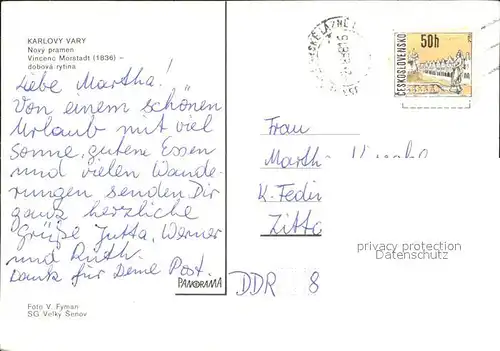 KARLOVY VARY
Nový pramen
Vincenc Morstadt (1836) –
dobová rytina
Liebe Martha!
Von einem schönen
Urlaub mit viel
Sonne, gutene Essen
und vielen Wande-
rungen senden Dir
ganz herzliche
Grüße Jutta, Werner
und Ruth.
Dank für Deine Post.
Foto V. Fyman
SG Velký Šenov
PANORAMA
ČESKOSLOVENSKO
50h
Frau
Marth
K.-Fedin
Zitta
DDR 8
privacy protection
Datenschutz